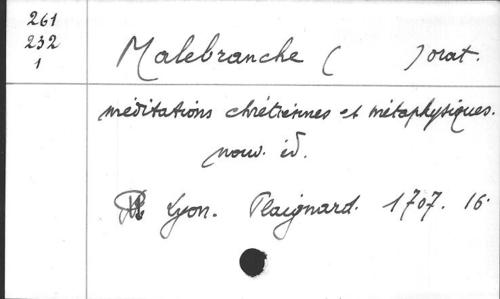 261
232
1
Malebranche ( ) orat.
méditations chrétiennes et métaphysiques.
nouv. éd.
Lyon. Plaignard. 1707. 16.